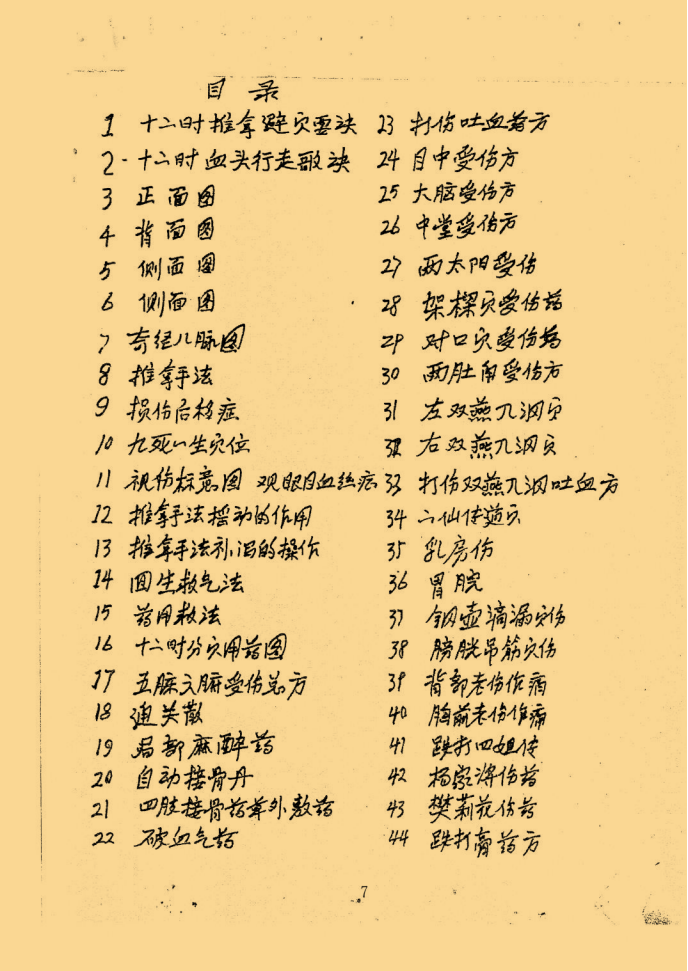 目录
1 十二时推拿避穴要诀
2 十二时血头行走歌诀
3 正面图
4 背面图
5 侧面图
6 侧面图
7 奇经八脉图
8 推拿手法
9 损伤后移症
10 九死一生穴位
11 视伤标意图 观眼目血丝症
12 推拿手法摇动的作用
13 推拿手法补泻的操作
14 回生救气法
15 药用救法
16 十二时分穴用药图
17 五脏六腑受伤总方
18 通关散
19 局部麻醉药
20 自动接骨丹
21 四肢接骨药膏外敷药
22 破血气药
23 打伤吐血药方
24 目中受伤方
25 大脑受伤方
26 中堂受伤方
27 两太阳受伤
28 架樑穴受伤药
29 对口穴受伤药
30 两肚角受伤方
31 左双燕几洞穴
32 右双燕几洞穴
33 打伤双燕几洞吐血方
34 六仙传道穴
35 乳房伤
36 胃脘
37 铜壶滴漏穴伤
38 膀胱吊筋穴伤
39 背部老伤作痛
40 胸前老伤作痛
41 跌打四姐传
42 杨家将伤药
43 樊莉花伤药
44 跌打膏药方
7